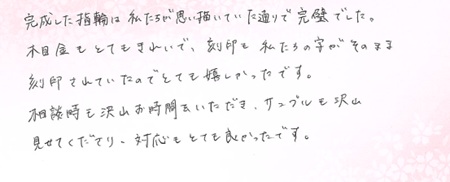 完成した指輪は私たちが思い描いていた通りで完璧でした。
木目金もとてもきれいで、刻印も私たちの字がそのまま
刻印されていたのでとても嬉しかったです。
相談時も沢山お時間をいただき、サンプルも沢山
見せてくださり、対応もとても良かったです。